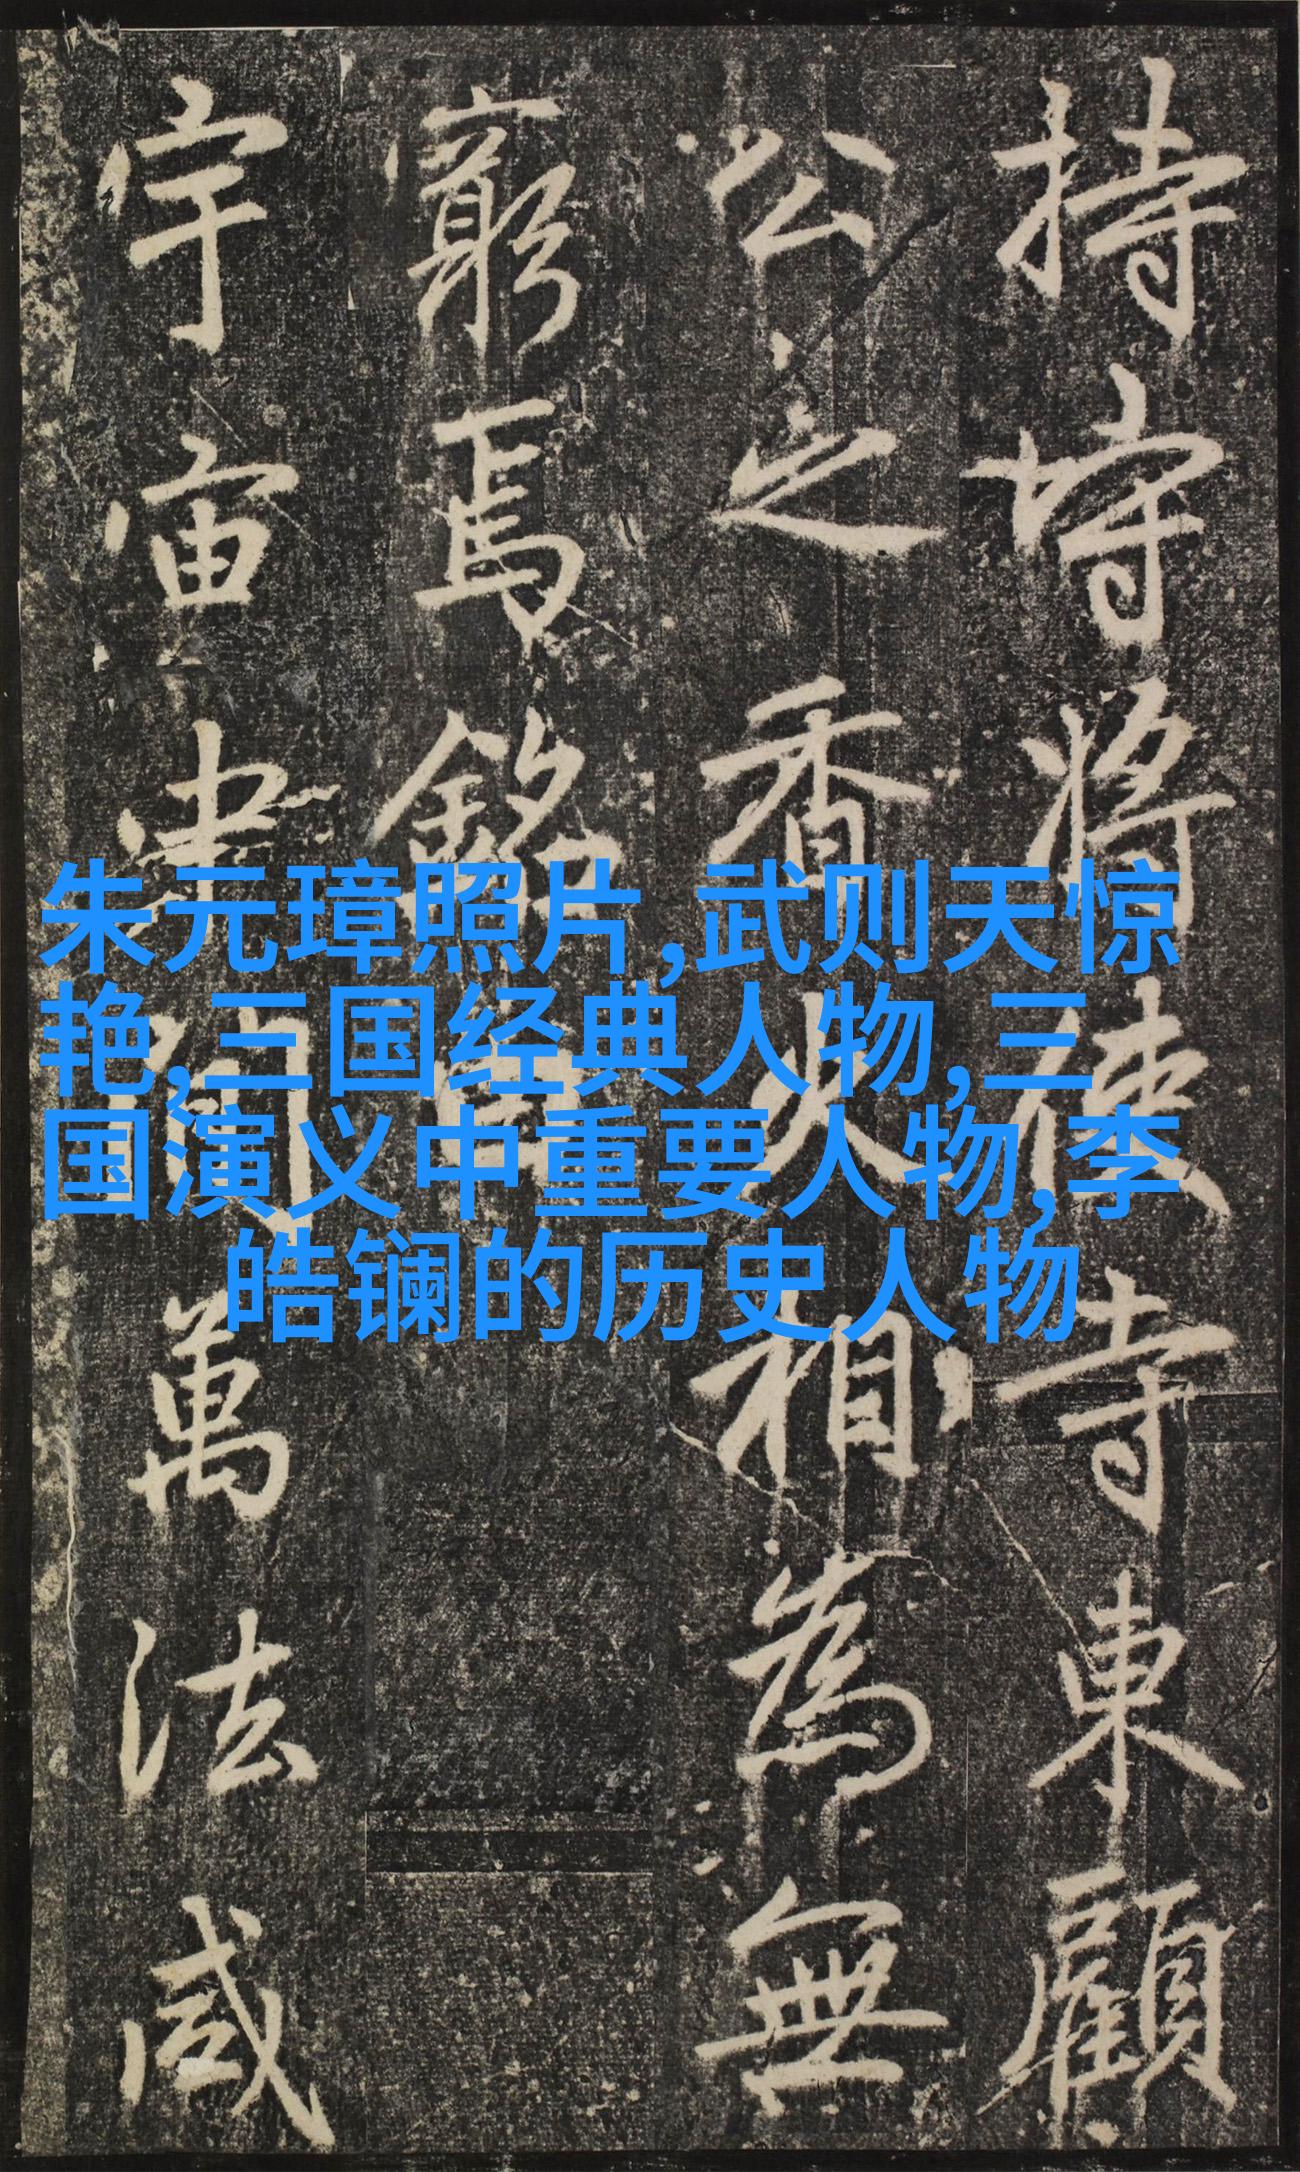 持將寺東顧
公之香火相為無
窮焉銘曰
宇宙萬法咸
朱元璋照片,武则天惊
艳,三国经典人物,三
国演义中重要人物,李
皓镧的历史人物